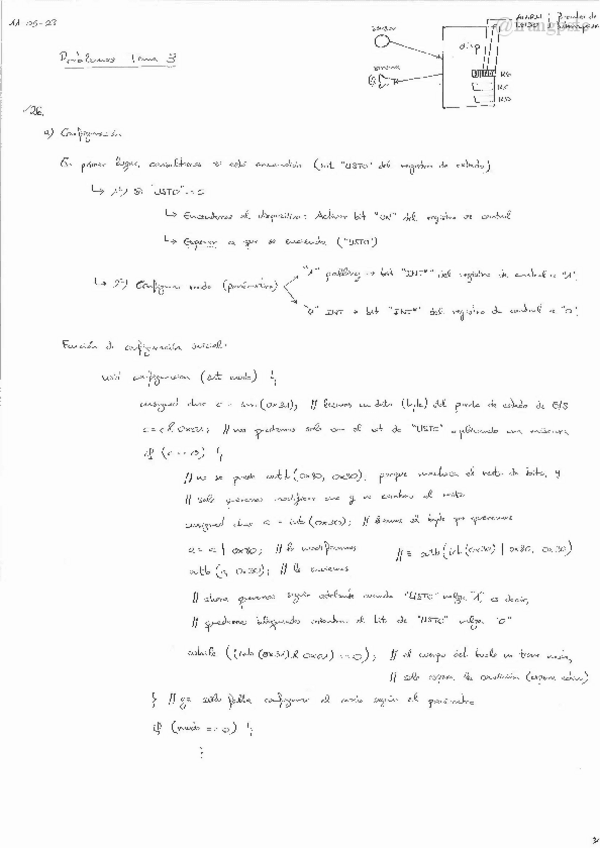 11-05-23
Problemas Tema 3
sensor
sirena
disp
26.
a) Configuración
En primer lugar, consultamos si está encendido (bit "LISTO" del registro de estado)
↳ 1º) Si "LISTO" == 0
↳ Encendemos el dispositivo: Activar bit "ON" del registro de control
↳ Esperar a que se encienda ("LISTO")
↳ 2º) Configurar modo (parámetro)
"1" polling → bit "INT" del registro de control a "1".
"0" INT → bit "INT" del registro de control a "0".
Función de configuración inicial:
void configuracion (int modo) {
unsigned char c = inb(0x31); // leemos un dato (byte) del puerto de estado de E/S
c = c & 0x01; // nos quedamos solo con el bit de "LISTO" aplicando una máscara
if (c == 0) {
// no se puede outb(0x80, 0x30), porque machaca el resto de bits, y
// solo queremos modificar uno y no cambiar el resto
unsigned char c = inb(0x30); // leemos el byte que queremos
c = c | 0x80; // lo modificamos // ≡ outb(inb(0x30) | 0x80, 0x30)
outb(c, 0x30); // lo enviamos
// ahora queremos seguir cuando "LISTO" valga "1", es decir,
// quedarnos bloqueado mientras el bit de "LISTO" valga "0"
while ((inb(0x31) & 0x01) == 0); // el cuerpo del bucle no tiene nada,
// solo espera la condición (espera activa)
} // ya solo falta configurar el modo según el parámetro
if (modo == 0) {
⋮